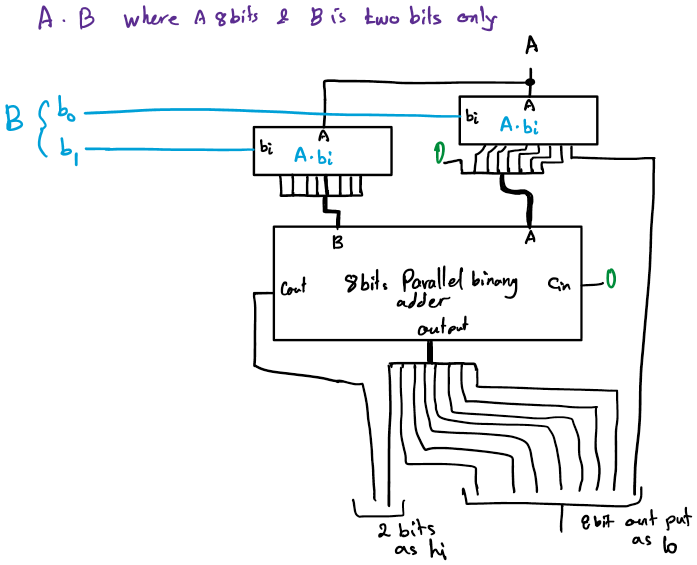 A . B where A 8bits & B is two bits only
A
B { b0
b1
bi A
A.bi
bi A
A.bi
0
B A
Cout 8bits Parallel binary adder Cin 0
output
2 bits
as hi
8bit out put
as lo